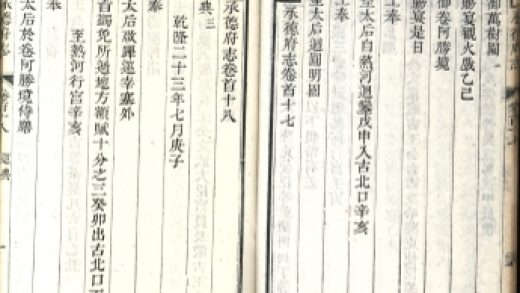 御萬樹園
賜宴觀火戲乙巳
御卷阿勝境
賜宴是日
上奉
皇太后自熱河迴鑾戊申入古北口辛亥
皇太后迴圓明園
承德府志卷首十七
承德府志卷首十八
典三
乾隆二十三年七月庚子
上奉
太后啟蹕運幸塞外
旨蠲免所過地方額賦十分之三癸卯出古北口
至熱河行宮辛亥
上奉
太后於卷阿勝境侍膳
承德府志